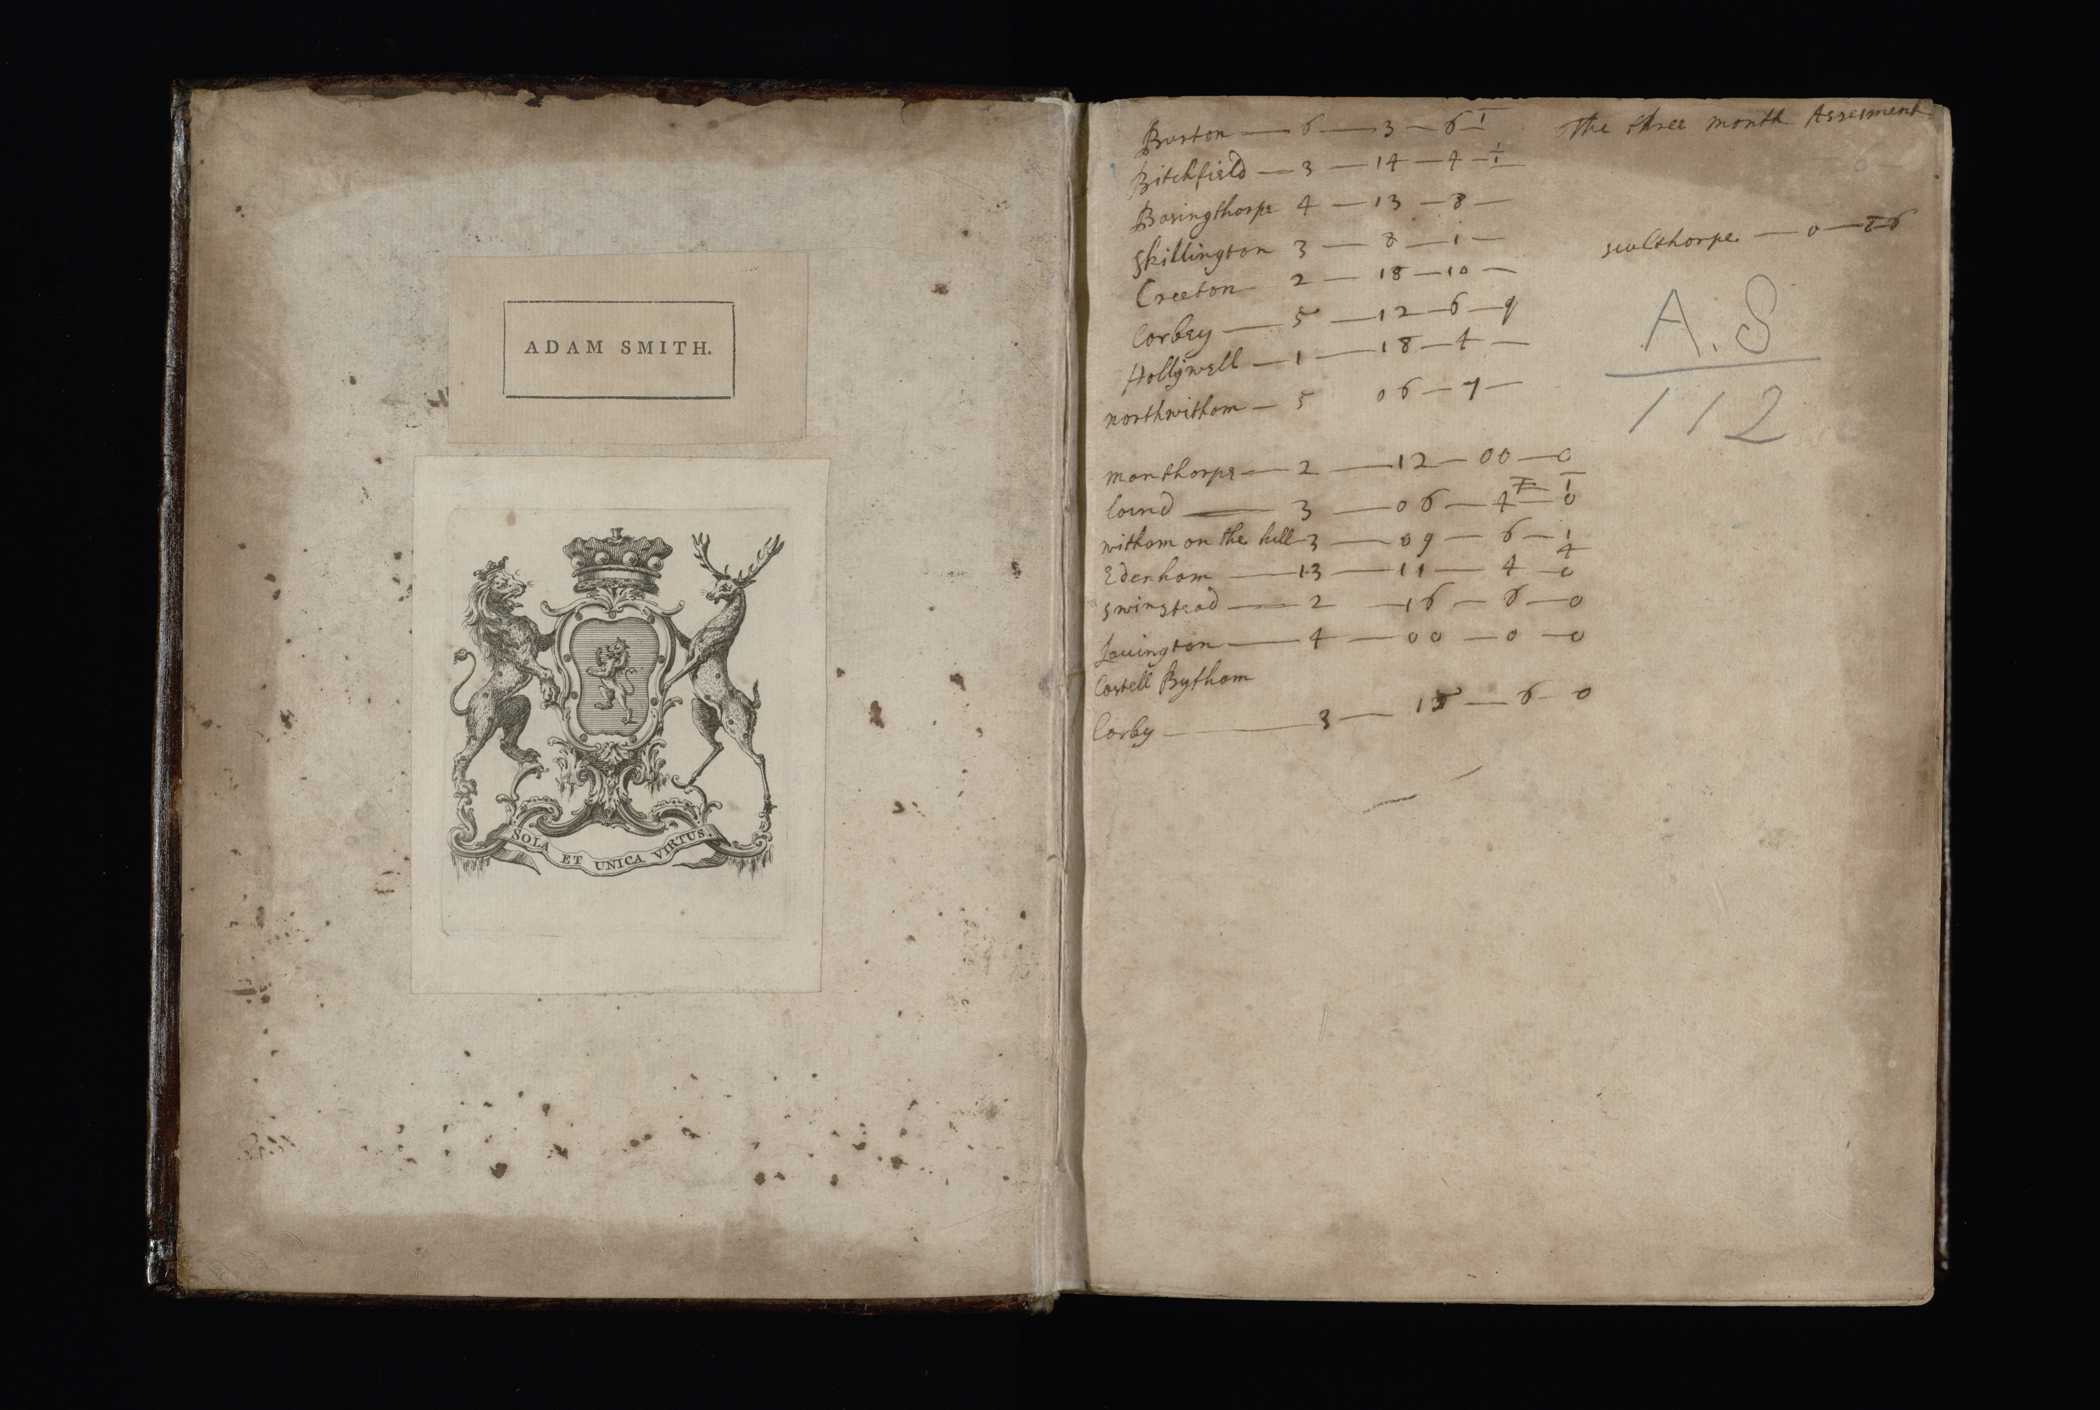 ADAM SMITH.
SOLA ET UNICA VIRTUS.
The three month Assesment
Burton — 6 — 3 — 6 1
Bitchfield — 3 — 14 — 4 — 1/1
Basingthorpe 4 — 13 — 8 —
Skillington 3 — 8 — 1 —
sculthorpe — 0 —
Creeton 2 — 18 — 10 —
Corbey — 5 — 12 — 6 — 9
Hollywell — 1 — 18 — 4 —
northwitham — 5 06 — 7 —
A.S
112
manthorpe — 2 — 12 — 00 — 0
Lound — 3 — 06 — 4 — 0
witham on the hill 3 — 09 — 6 — 1
Edenham — 13 — 11 — 4 — 0
Swinstead — 2 — 16 — 6 — 0
Lauington — 4 — 00 — 0 — 0
Castell Bytham
Corby — 3 — 15 — 6 — 0